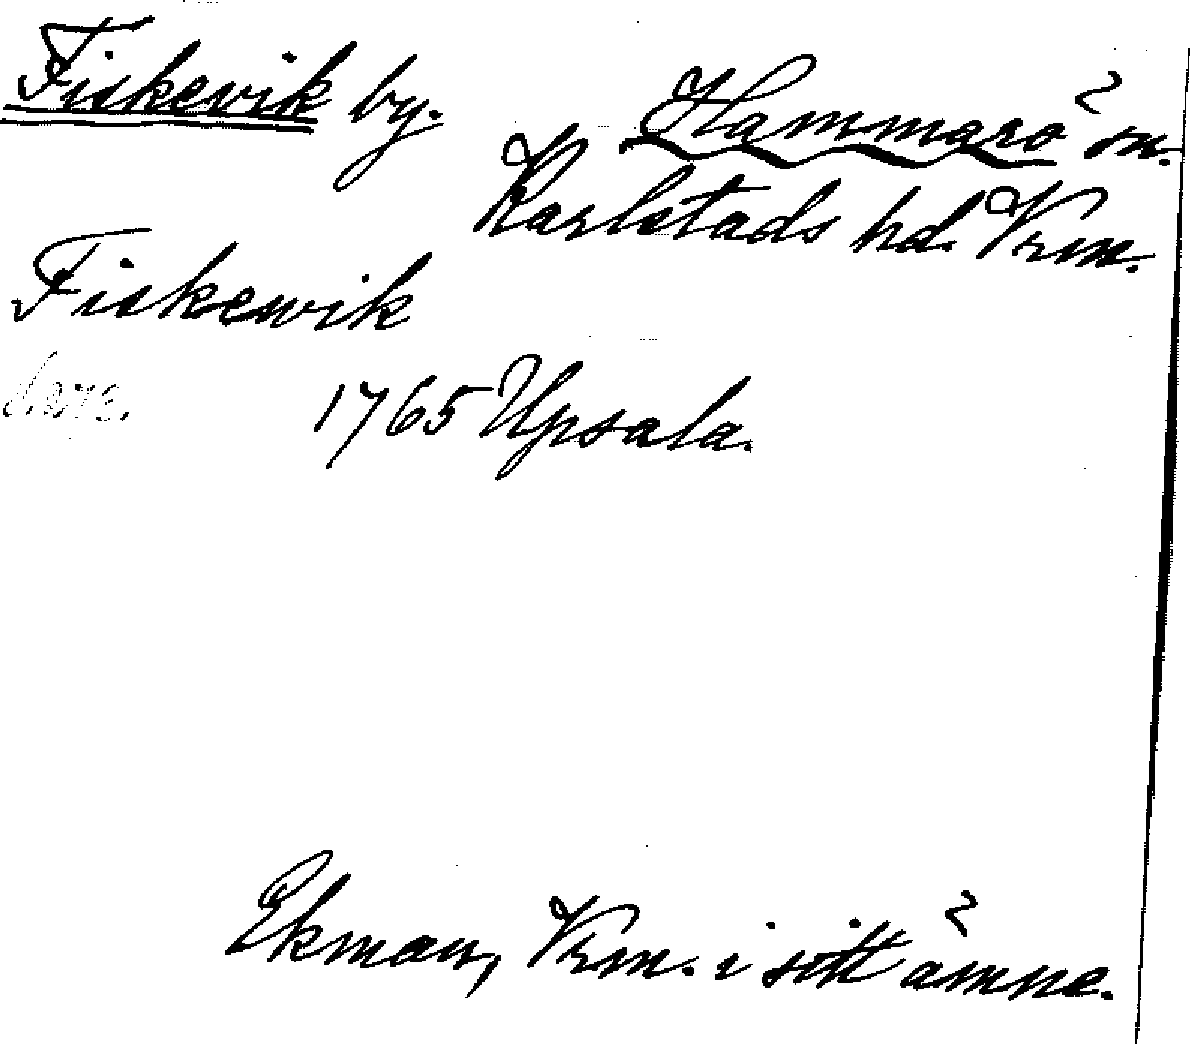 Fiskevik by. Hammarö sn.
Karlstads hd. Vrm.
Fiskewik
1765 Upsala.
Ekman, Vrm. i sitt ämne.